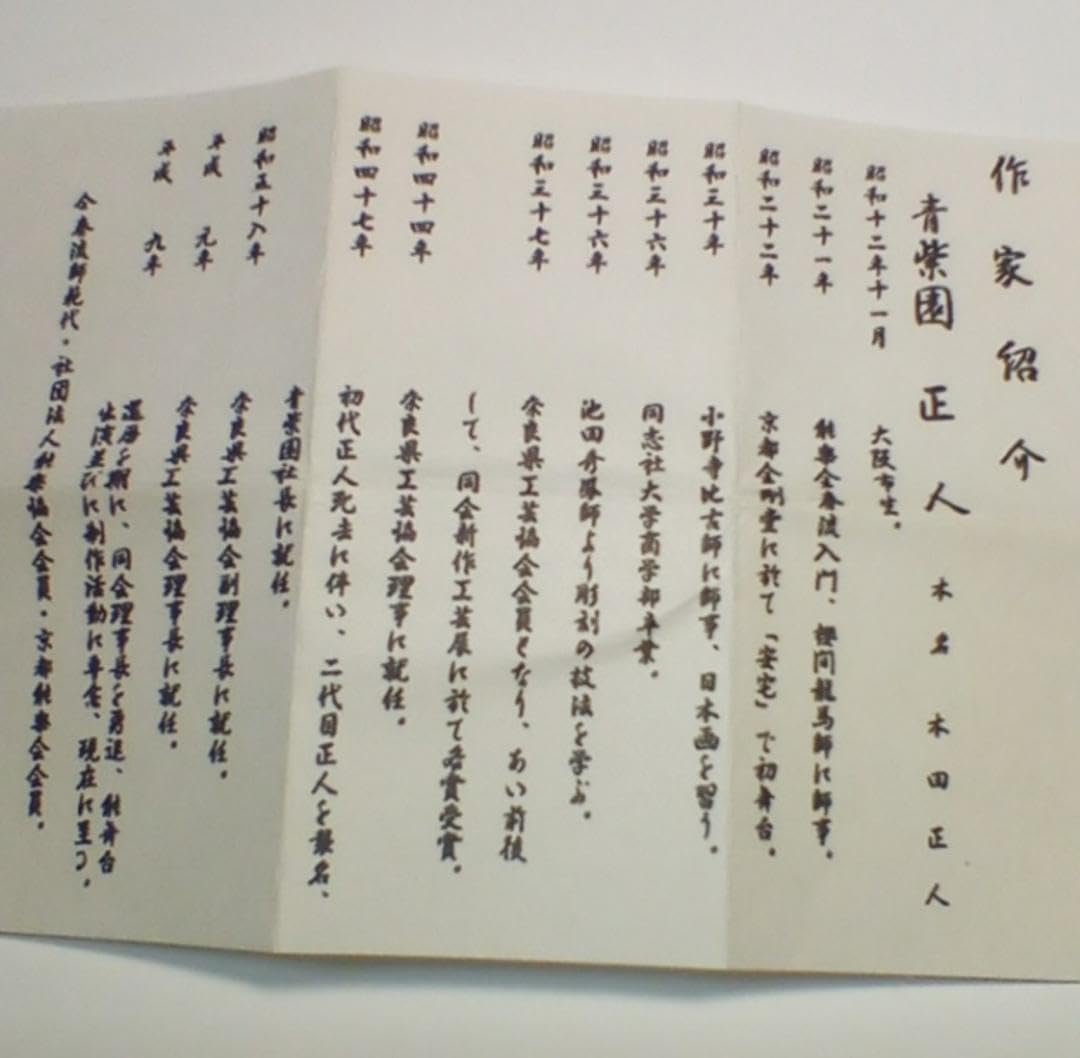 作家紹介
青柴園 正人 本名 木田正人
昭和十二年十一月 大阪市生。
昭和二十一年 能楽金春流入門、桜間龍馬師に師事。
昭和二十二年 京都金剛堂に於て「安宅」で初舞台。
昭和三十年 小野寺比古師に師事、日本画を習う。
昭和三十六年 同志社大学商学部卒業。
昭和三十六年 池田介鳳師より彫刻の技法を学ぶ。
昭和三十七年 奈良県工芸協会会員となり、あい前後
して、同会新作工芸展に於て各賞受賞。
昭和四十四年 奈良県工芸協会理事に就任。
昭和四十七年 初代正人死去に伴い、二代目正人を襲名、
青柴園社長に就任。
昭和五十八年 奈良県工芸協会副理事長に就任。
平成 元年 奈良県工芸協会理事長に就任。
平成 九年 還暦を期に、同会理事長を勇退、能舞台
出演並びに制作活動に専念、現在に至る。
金春流師範代・社団法人能楽協会会員・京都能楽会会員。